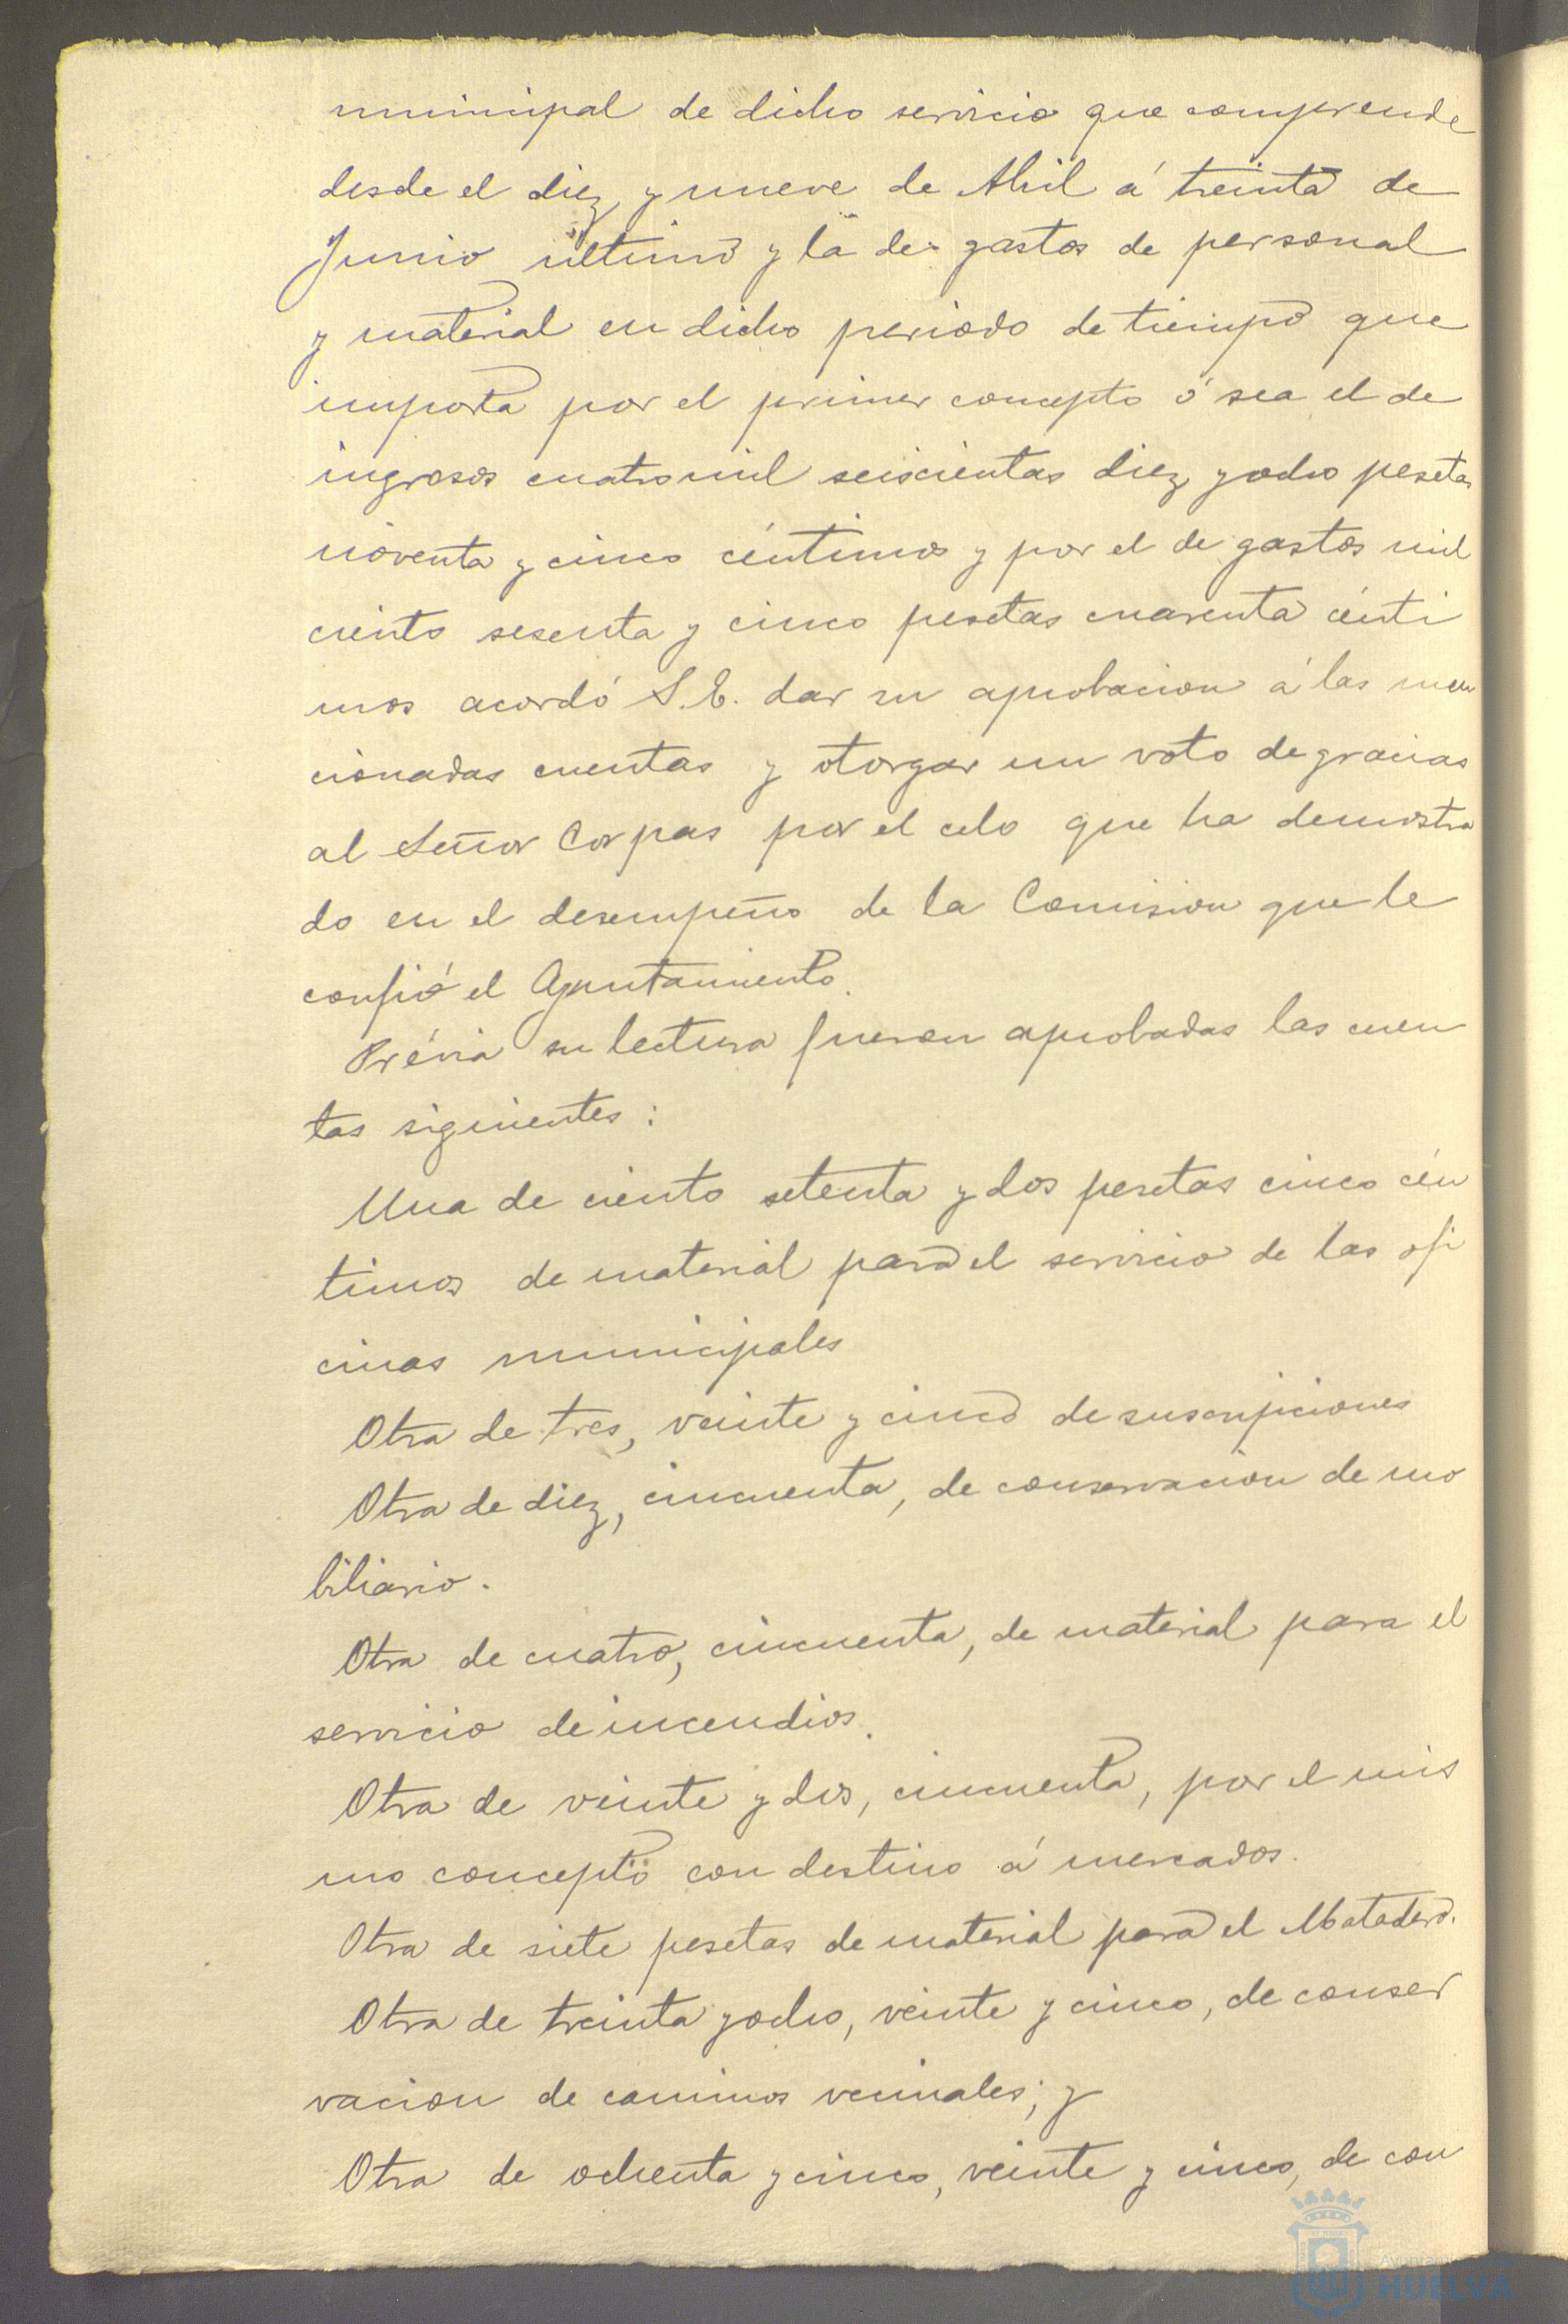 municipal de dicho servicio que comprende
desde el diez y nueve de Abril á treinta de
Junio último y la de gastos de personal
y material en dicho periodo de tiempo que
importa por el primer concepto ó sea el de
ingresos cuatro mil seiscientas diez y ocho pesetas
noventa y cinco céntimos y por el de gastos mil
ciento sesenta y cinco pesetas cuarenta cénti
mos acordó S.E. dar su aprobacion á las men
cionadas cuentas y otorgar un voto de gracias
al Señor Corpas por el celo que ha demostra
do en el desempeño de la Comision que le
confió el Ayuntamiento.
Prévia su lectura fueron aprobadas las cuen
tas siguientes:
Una de ciento setenta y dos pesetas cinco cén
timos de material para el servicio de las ofi
cinas municipales
Otra de tres, veinte y cinco de suscripciones
Otra de diez, cincuenta, de conservacion de mo
biliario.
Otra de cuatro, cincuenta, de material para el
servicio de incendios.
Otra de veinte y dos, cincuenta, por el mis
mo concepto con destino á mercados.
Otra de siete pesetas de material para el Matadero.
Otra de treinta y ocho, veinte y cinco, de conser
vacion de caminos vecinales; y
Otra de ochenta y cinco, veinte y cinco, de con
HUELVA